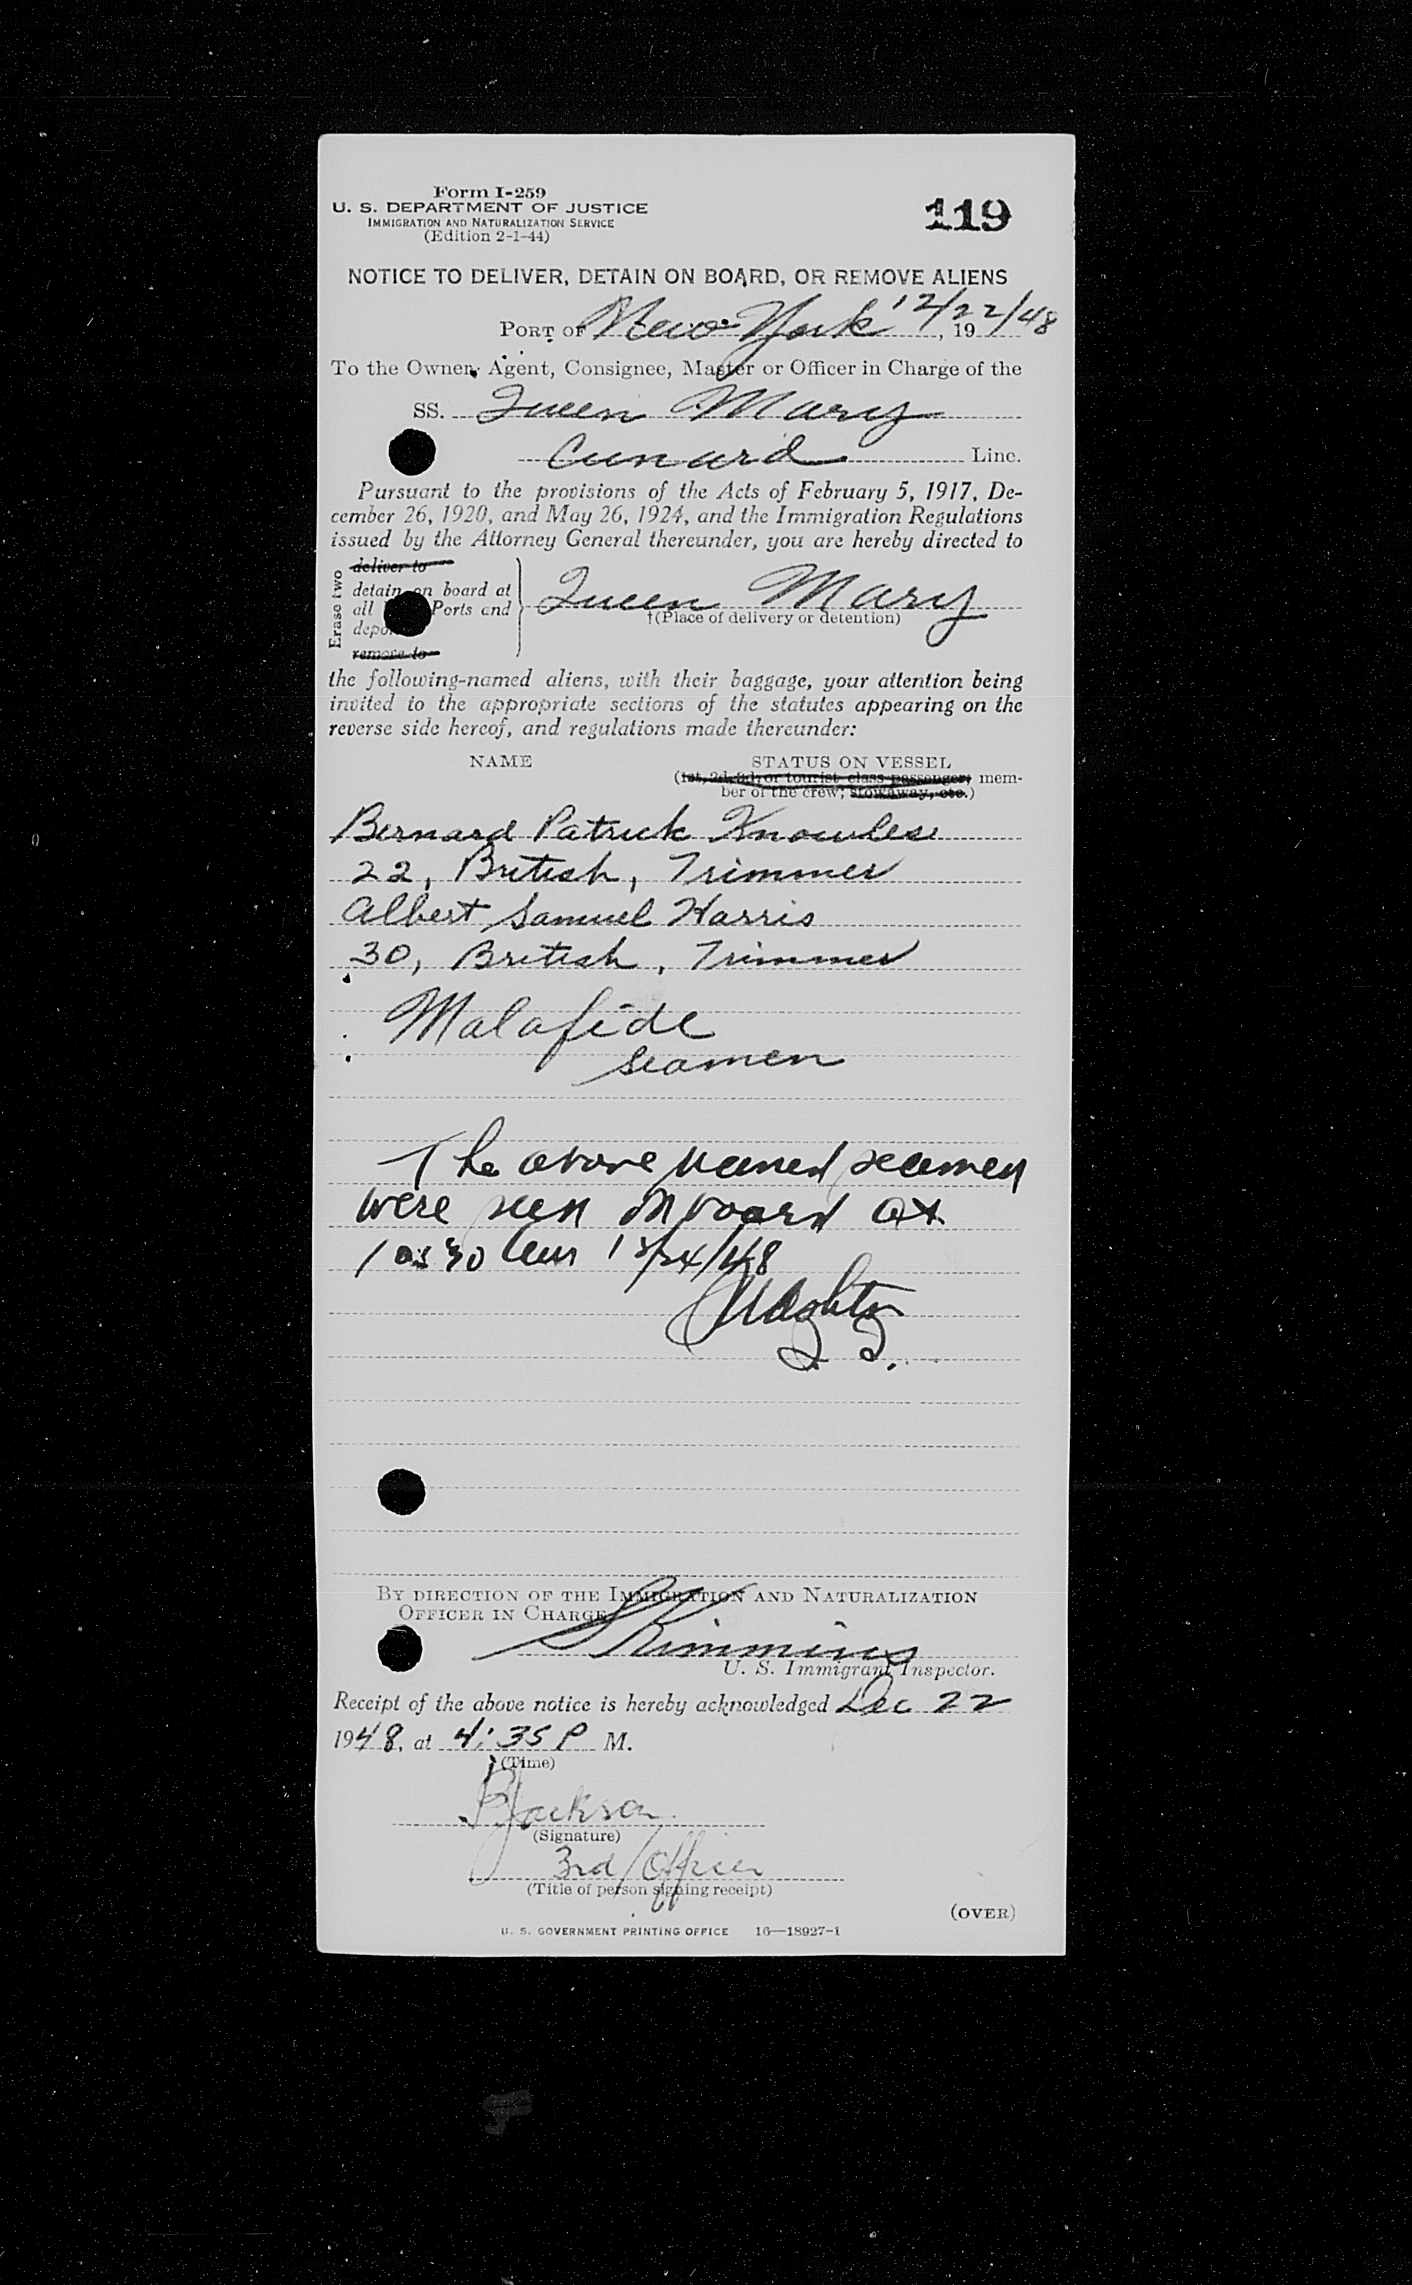 Form I-259
U. S. DEPARTMENT OF JUSTICE
IMMIGRATION AND NATURALIZATION SERVICE
(Edition 2-1-44)
119
NOTICE TO DELIVER, DETAIN ON BOARD, OR REMOVE ALIENS
PORT OF New York 12/22/48, 19
To the Owner, Agent, Consignee, Master or Officer in Charge of the
SS. Queen Mary
Cunard Line.
Pursuant to the provisions of the Acts of February 5, 1917, De-
cember 26, 1920, and May 26, 1924, and the Immigration Regulations
issued by the Attorney General thereunder, you are hereby directed to
Erase two
deliver to
detain on board at
all Ports and
remove to
Queen Mary
†(Place of delivery or detention)
the following-named aliens, with their baggage, your attention being
invited to the appropriate sections of the statutes appearing on the
reverse side hereof, and regulations made thereunder:
NAME STATUS ON VESSEL
(1st, 2d, 3d, or tourist class passenger; mem-
ber of the crew; stowaway, etc.)
Bernard Patrick Knowles
22, British, Trimmer
Albert Samuel Harris
30, British, Trimmer
Malafide
seamen
The above named seamen
were seen on board at
10:30 am 12/24/48
BY DIRECTION OF THE IMMIGRATION AND NATURALIZATION
OFFICER IN CHARGE
U. S. Immigrant Inspector.
Receipt of the above notice is hereby acknowledged Dec 22
1948, at 4:35 P M.
(Time)
Jackson
(Signature)
3rd/Officer
(Title of person signing receipt)
(OVER)
U. S. GOVERNMENT PRINTING OFFICE 16—18927-1